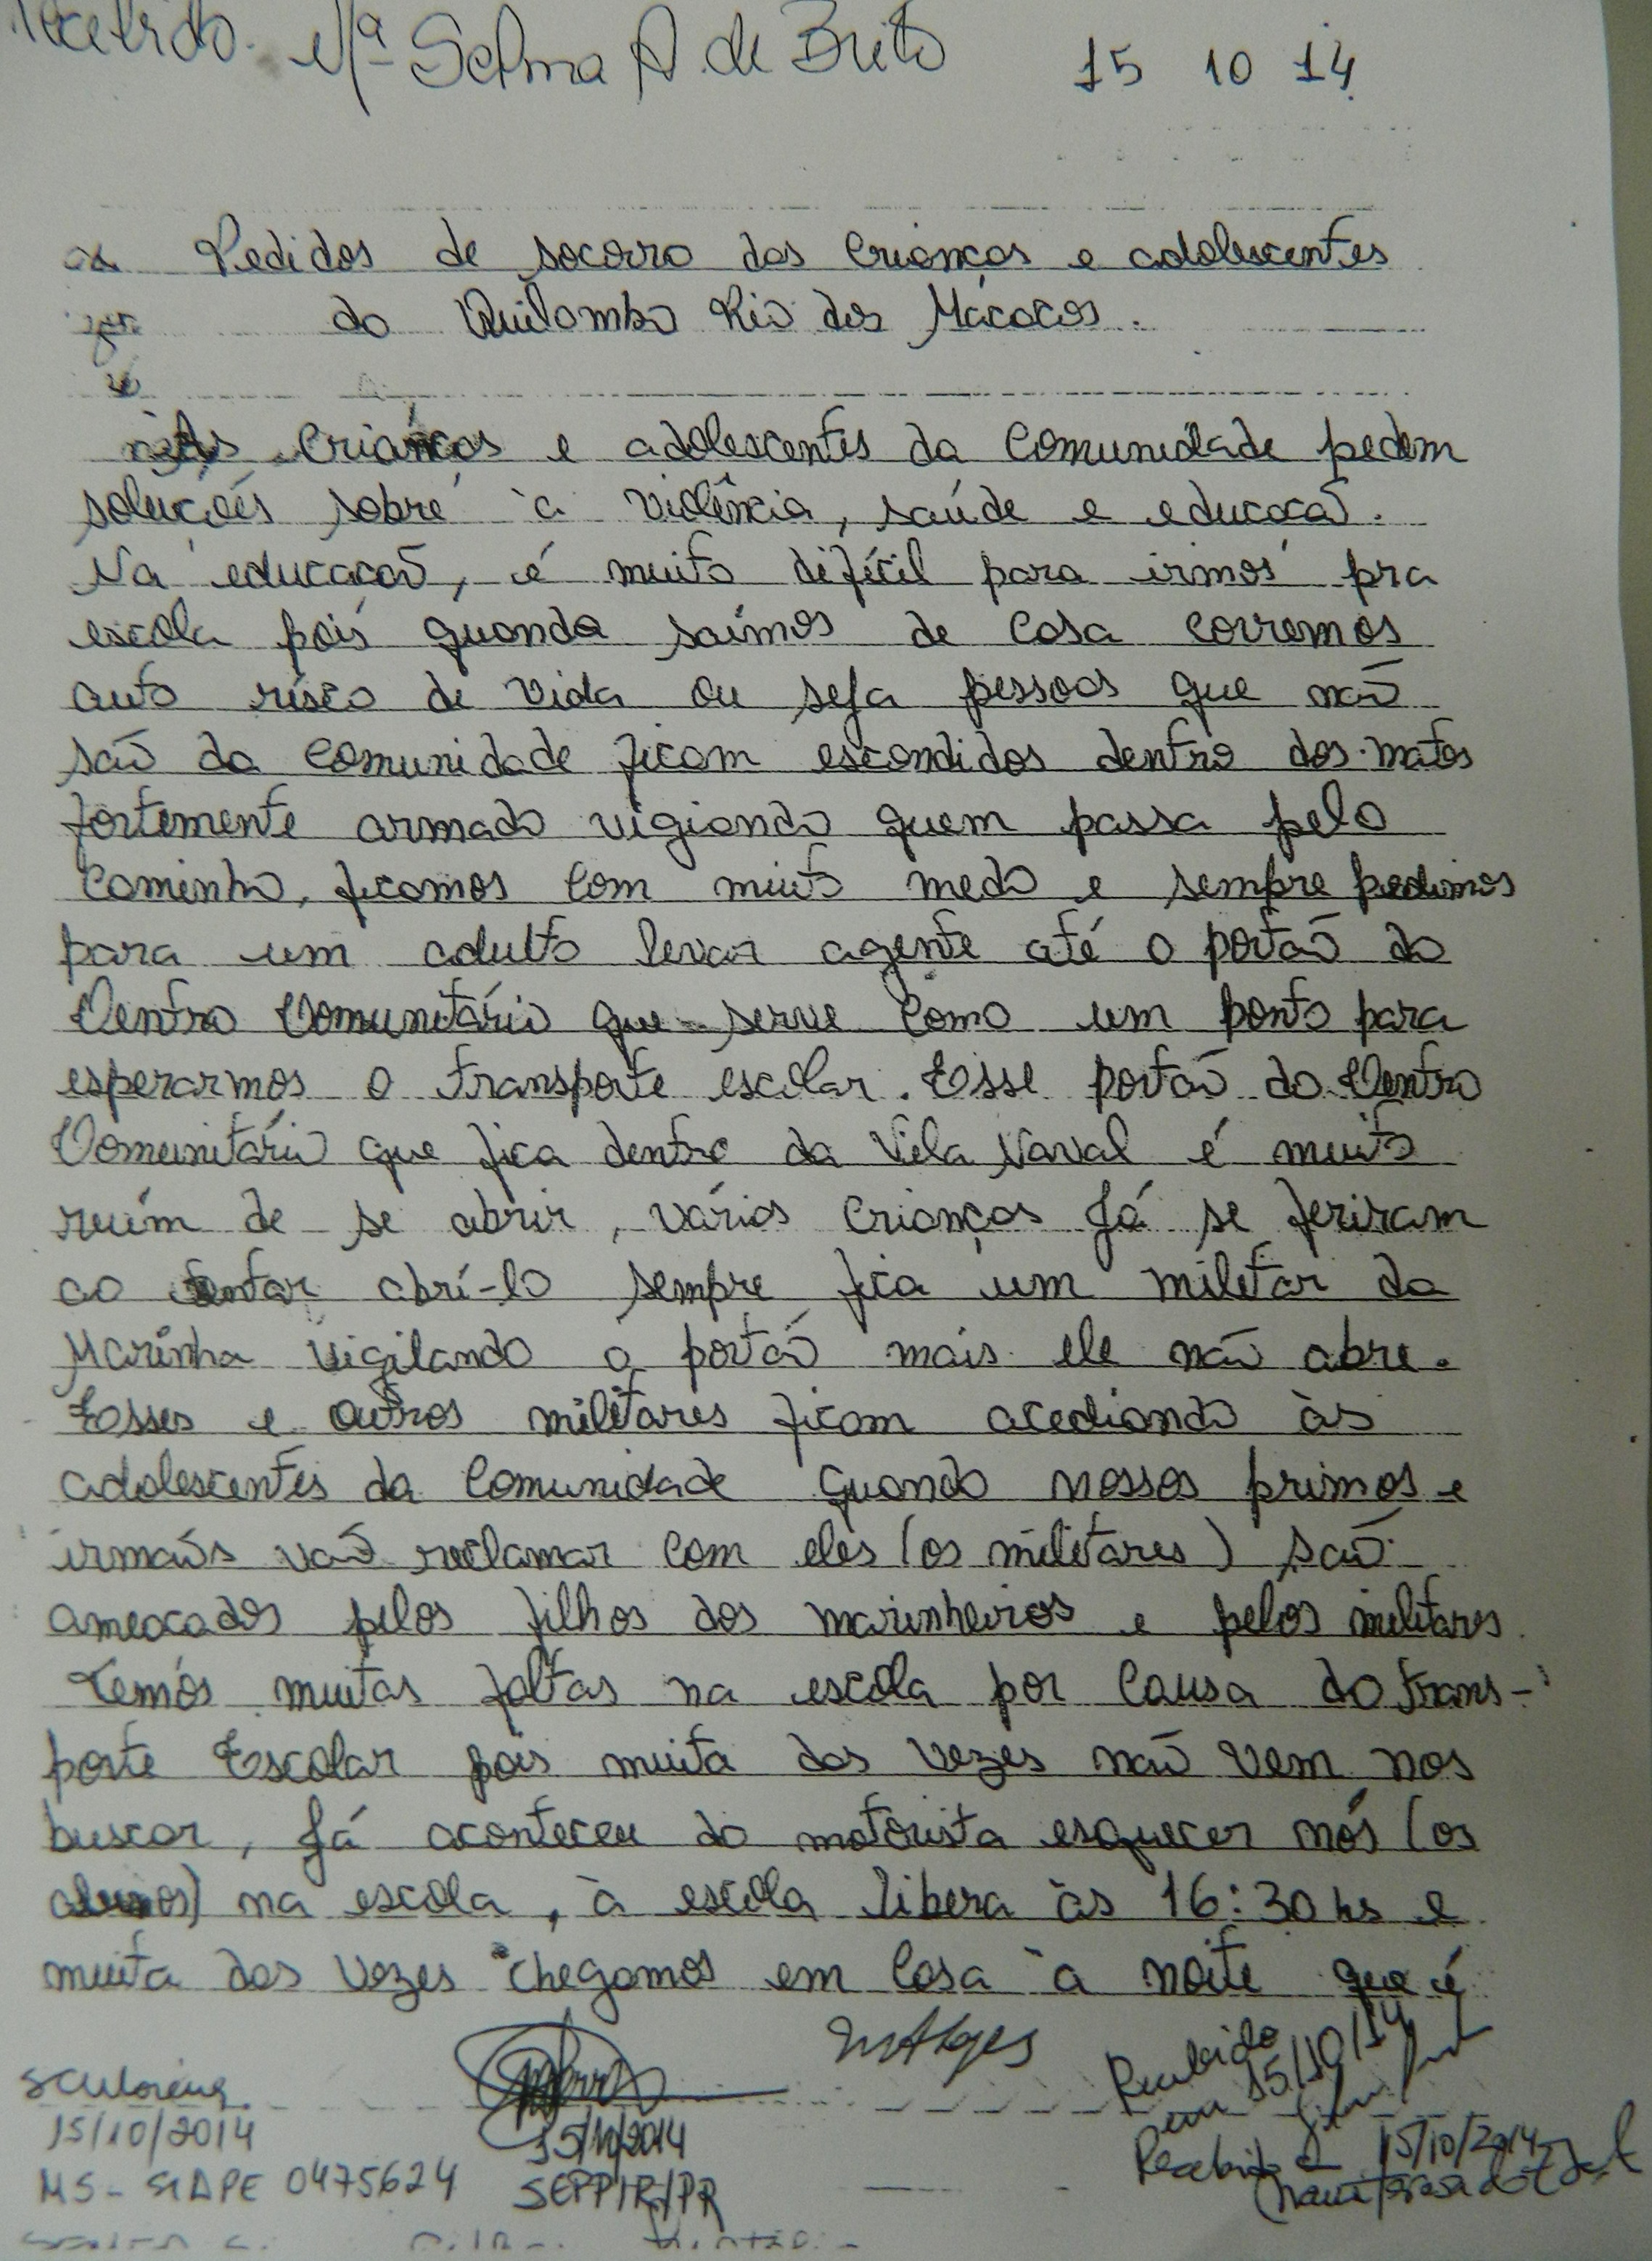 Mª Selma A. de Brito 15 10 14
Pedidos de socorro das crianças e adolescentes
do Quilombo Rio dos Macacos.
As crianças e adolescentes da comunidade pedem
soluções sobre à violência, saúde e educação.
Na educação, é muito difícil para irmos pra
escola pois quando saímos de casa corremos
auto risco de vida ou seja pessoas que não
são da comunidade ficam escondidos dentro dos matos
fortemente armado vigiando quem passa pelo
caminho, ficamos com muito medo e sempre pedimos
para um adulto levar agente até o portão do
Centro Comunitário que serve como um ponto para
esperarmos o transporte escolar. Esse portão do Centro
Comunitário que fica dentro da Vila Naval é muito
ruím de se abrir, várias crianças já se feriram
ao tentar abrí-lo sempre fica um militar da
Marinha vigilando o portão mais ele não abre.
Esses e outros militares ficam acediando às
adolescentes da comunidade quando nossos primos e
irmãos vão reclamar com eles (os militares) são
ameaçados pelos filhos dos marinheiros e pelos militares.
Temos muitas faltas na escola por causa do trans-
porte Escolar pois muita das vezes não vem nos
buscar, já aconteceu do motorista esquecer nós (os
alunos) na escola, à escola libera às 16:30 hs e
muita das vezes chegamos em casa à noite que é
Recebido
em 15/10/14
15/10/2014
15/10/2014
MS - SIAPE 0475624
SEPPIR/PR
Recebido 15/10/2014